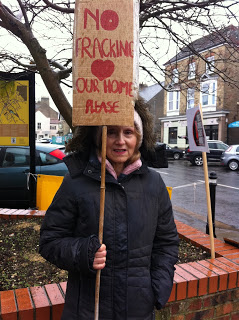 NO
FRACKING
OUR HOME
PLEASE